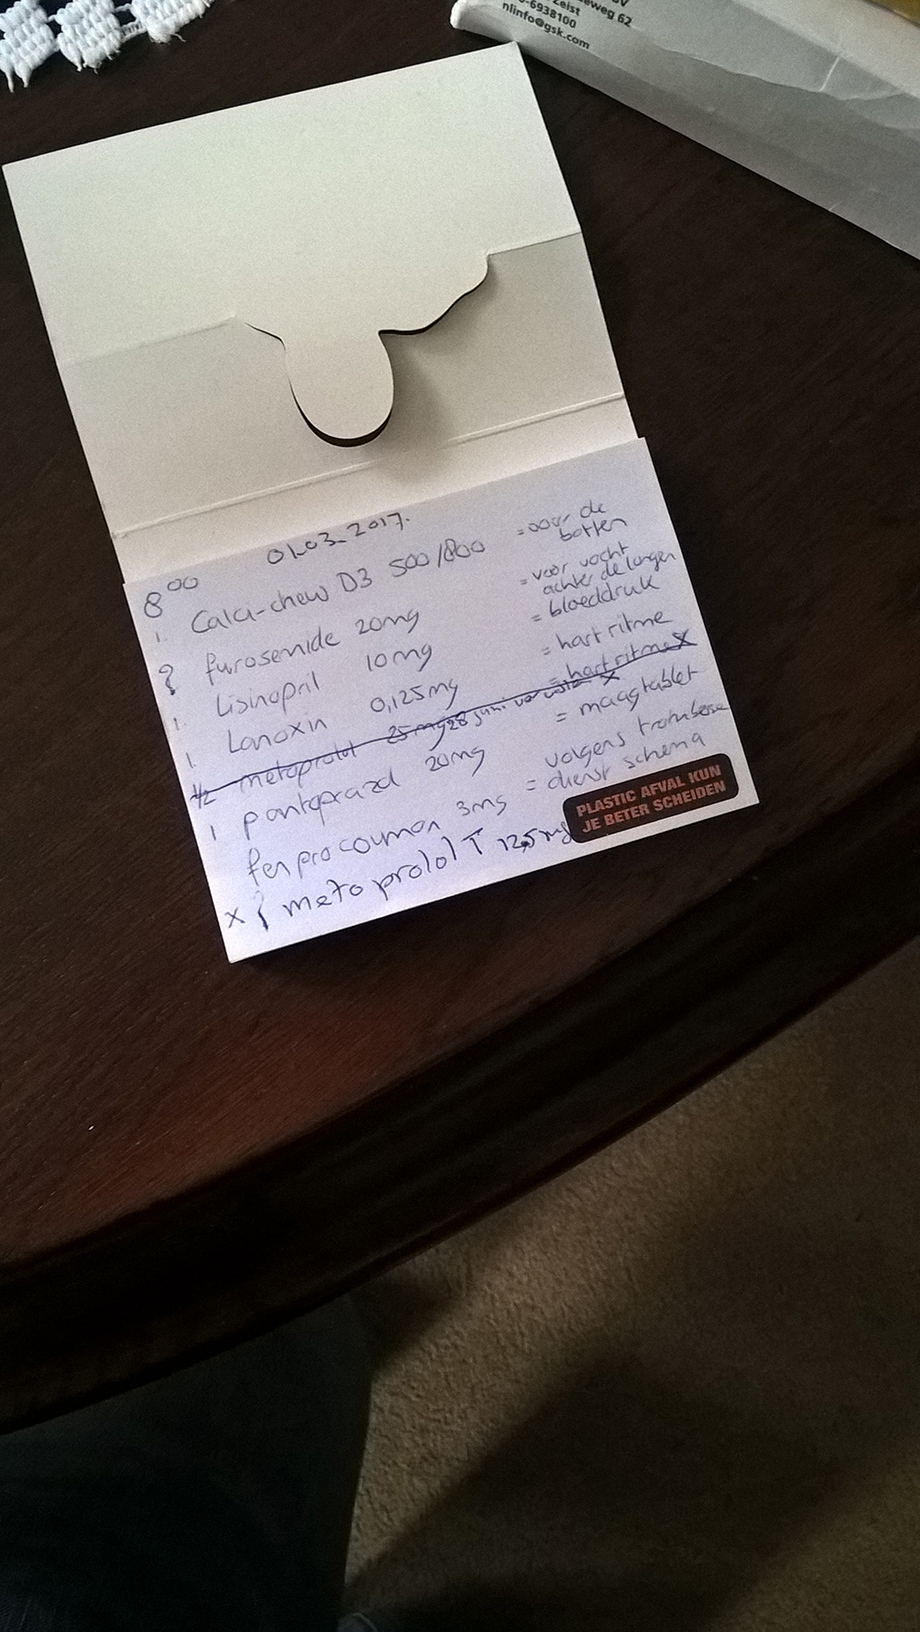 BV
eweg 62
Zeist
-6938100
nlinfo@gsk.com
01.03.2017.
8⁰⁰
1. Calci-chew D3 500/800 = voor de botten
furosemide 20mg = voor vocht achter de longen
1. Lisinopril 10mg = bloeddruk
1. Lanoxin 0,125mg = hartritme
1/2 metoprolol 25mg 28 juni = hartritme X
1 pantoprazol 20mg = maagtablet
fenprocoumon 3mg = volgens trombose dienst schema
x metoprolol T 12,5mg
PLASTIC AFVAL KUN
JE BETER SCHEIDEN